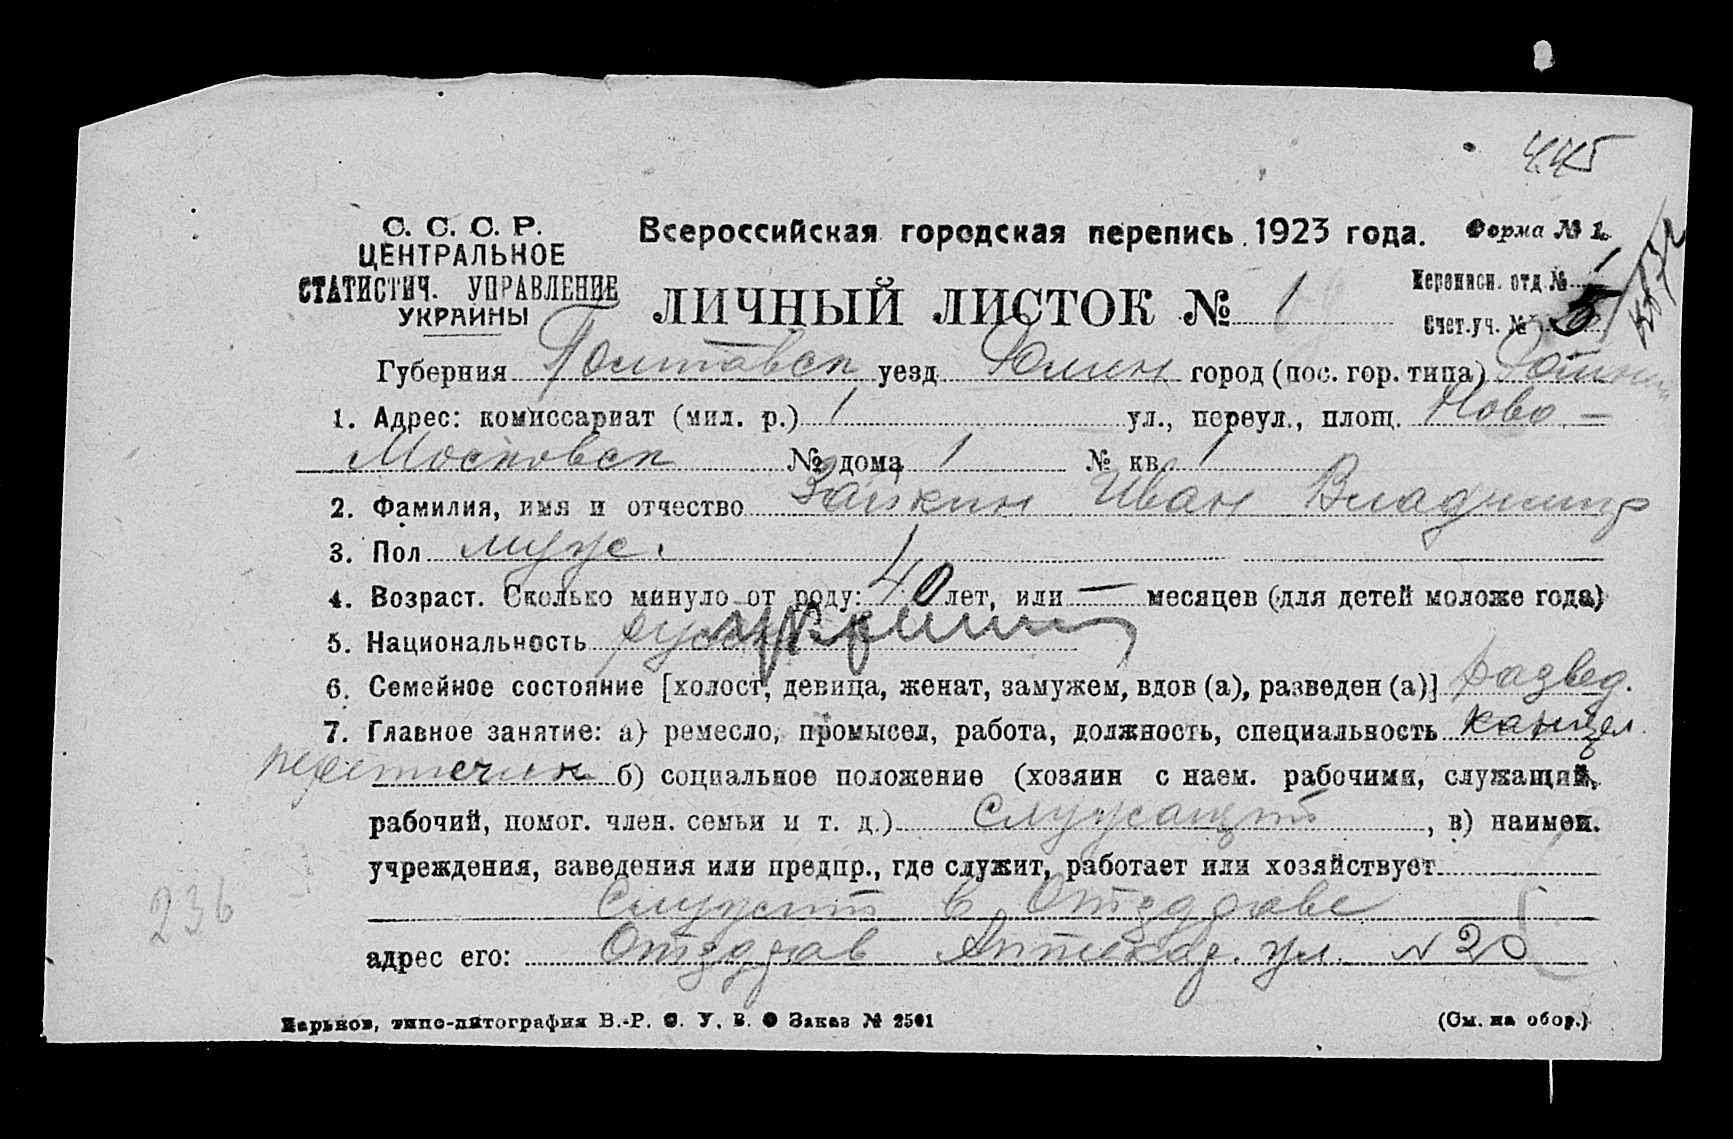 445
С. С. С. Р.
ЦЕНТРАЛЬНОЕ
СТАТИСТИЧ. УПРАВЛЕНИЕ
УКРАИНЫ
Всероссийская городская перепись 1923 года.
Форма № 1.
ЛИЧНЫЙ ЛИСТОК № 1
Переписн. отд. № 1
Счет. уч. № 5
Губерния Полтавск уезд Ромен город (пос. гор. типа) Ромны
1. Адрес: комиссариат (мил. р.) 1 ул., переул., площ. Ново-
Московск № дома 1 № кв. 1
2. Фамилия, имя и отчество Заикин Иван Владимир
3. Пол муж.
4. Возраст. Сколько минуло от роду: 40 лет, или — месяцев (для детей моложе года)
5. Национальность русск
6. Семейное состояние [холост, девица, женат, замужем, вдов (а), разведен (а)] развед.
7. Главное занятие: а) ремесло, промысел, работа, должность, специальность канцел.
б) социальное положение (хозяин с наем. рабочими, служащий,
рабочий, помог. член. семьи и т. д.) Служащий, в) наимен.
учреждения, заведения или предпр., где служит, работает или хозяйствует
Служит в Отздраве
адрес его: Отздрав Аптекар. ул. № 25
236
Харьков, типо-литография В.-Р. С. У. В. О Заказ № 2501
(См. на обор.)